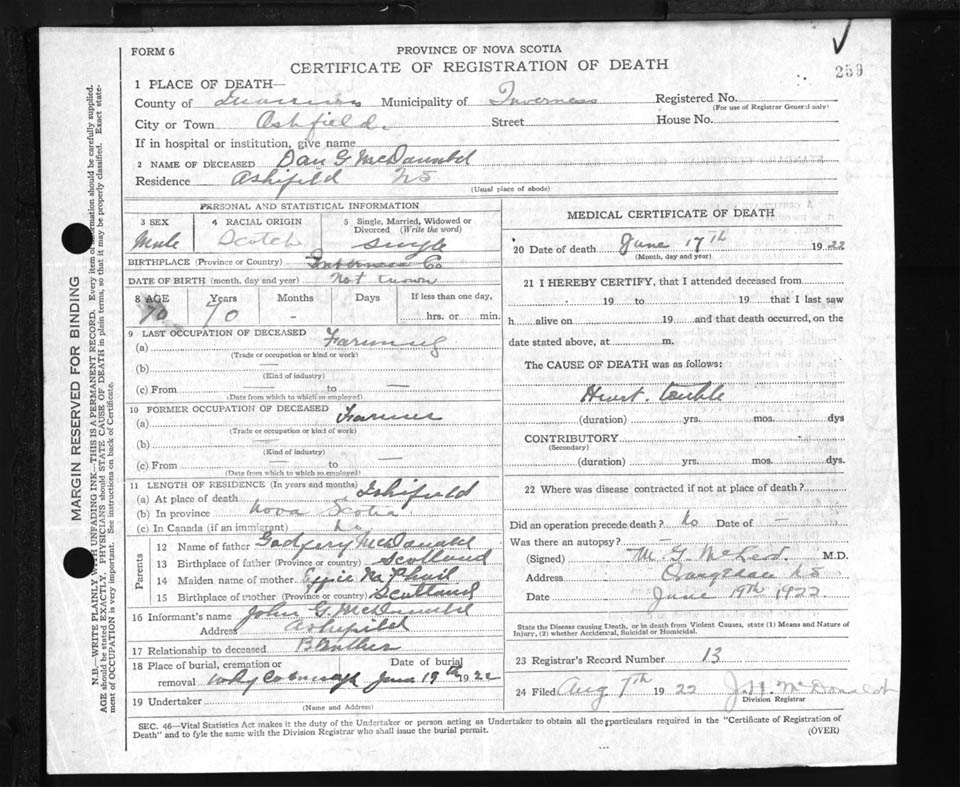 FORM 6
PROVINCE OF NOVA SCOTIA
CERTIFICATE OF REGISTRATION OF DEATH
259
1 PLACE OF DEATH—
County of Municipality of Inverness Registered No.
(For use of Registrar General only)
City or Town Ashfield. Street House No.
If in hospital or institution, give name
2 NAME OF DECEASED Dan G McDonald
Residence Ashfield NS
(Usual place of abode)
PERSONAL AND STATISTICAL INFORMATION
3 SEX 4 RACIAL ORIGIN 5 Single, Married, Widowed or Divorced (Write the word)
Male Scotch single
BIRTHPLACE (Province or Country) Inverness Co
DATE OF BIRTH (month, day and year) Not Known
8 AGE Years Months Days If less than one day,
70 70 - hrs. or min.
9 LAST OCCUPATION OF DECEASED
(a) Farming
(Trade or occupation or kind or work)
(b)
(Kind of industry)
(c) From — to —
(Date from which to which so employed)
10 FORMER OCCUPATION OF DECEASED
(a) Farmer
(Trade or occupation or kind of work)
(b) —
(Kind of industry)
(c) From — to —
(Date from which to which so employed)
11 LENGTH OF RESIDENCE (In years and months)
(a) At place of death Ashfield
(b) In province Nova Scotia
(c) In Canada (if an immigrant)
Parents
12 Name of father Godfrey McDonald
13 Birthplace of father (Province or country) Scotland
14 Maiden name of mother Effie
15 Birthplace of mother (Province or country) Scotland
16 Informant's name John G. McDonald
Address Ashfield
17 Relationship to deceased Brother
18 Place of burial, cremation or removal Date of burial
June 19th 1922
19 Undertaker
(Name and Address)
MEDICAL CERTIFICATE OF DEATH
20 Date of death June 17th 1922
(Month, day and year)
21 I HEREBY CERTIFY, that I attended deceased from
19 to 19 that I last saw
h alive on 19 and that death occurred, on the
date stated above, at m.
The CAUSE OF DEATH was as follows:
Heart. trouble
(duration) yrs. mos. dys
CONTRIBUTORY
(Secondary)
(duration) yrs. mos. dys.
22 Where was disease contracted if not at place of death?
Did an operation precede death? No Date of —
Was there an autopsy? —
(Signed) M. G. McLeod. M.D.
Address NS
Date June 19th 1922
State the Disease causing Death, or in death from Violent Causes, state (1) Means and Nature of
Injury, (2) whether Accidental, Suicidal or Homicidal.
23 Registrar's Record Number 13
24 Filed Aug 7th 1922 J. H. McDonald
Division Registrar
SEC. 46—Vital Statistics Act makes it the duty of the Undertaker or person acting as Undertaker to obtain all the particulars required in the "Certificate of Registration of
Death" and to fyle the same with the Division Registrar who shall issue the burial permit. (OVER)
MARGIN RESERVED FOR BINDING
N.B.—WRITE PLAINLY WITH UNFADING INK—THIS IS A PERMANENT RECORD. Every item of information should be carefully supplied.
AGE should be stated EXACTLY. PHYSICIANS should STATE CAUSE OF DEATH in plain terms, so that it may be properly classified. Exact state-
ment of OCCUPATION is very important. See instructions on back of Certificate.